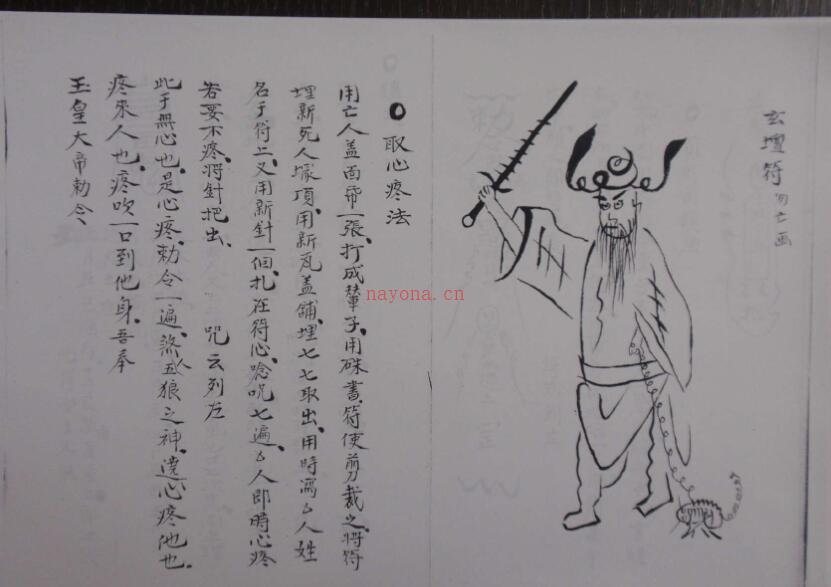 玄壇符
取心疼法
用亡人盖面帋一張、打成輦子、用硃書符使剪裁之、將符
埋新死人塚項、用新瓦盖鋪、埋七七取出、用時寫厶人姓
名于符上、又用新針一個、扎在符心、唸咒七遍、厶人即時心疼
若要不疼、將針把出、 咒云列左
此于無心也、是心疼、勅令一遍、煞五狼之神、澆心疼他也、
疼來人也、疼吹一口到他身、吾奉
玉皇大帝勅令、
nayona.cn